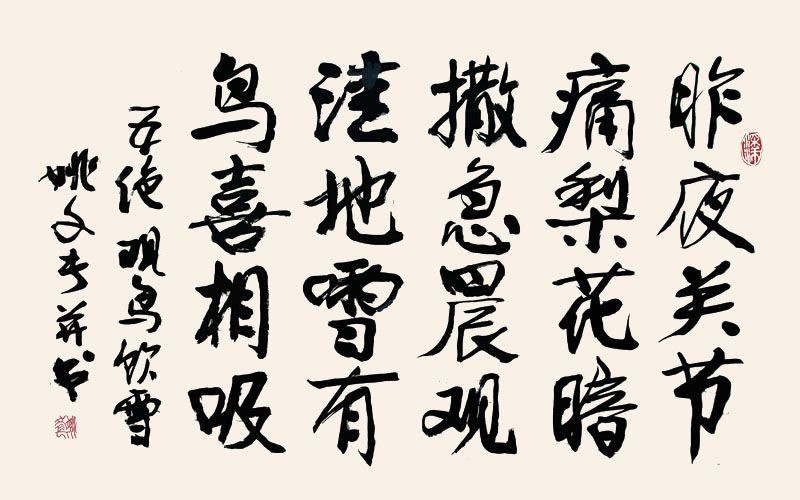 昨夜关节
痛梨花暗
撒急晨观
洼地雪有
鸟喜相吸
五绝观鸟饮雪
姚文长并书